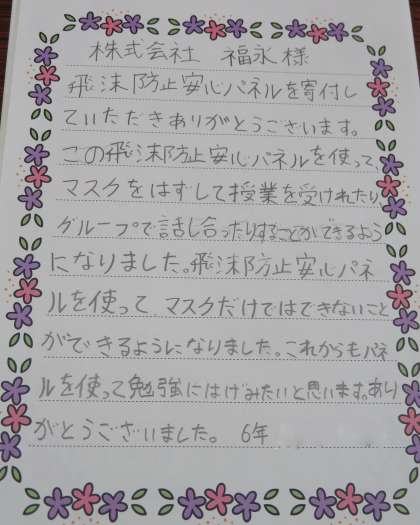 株式会社 福永様
飛沫防止安心パネルを寄付し
ていただきありがとうございます。
この飛沫防止安心パネルを使って、
マスクをはずして授業を受けれたり
グループで話し合ったりすることができるよう
になりました。飛沫防止安心パネ
ルを使って マスクだけではできないこと
ができるようになりました。これからもパネ
ルを使って勉強にはげみたいと思います。あり
がとうございました。 6年